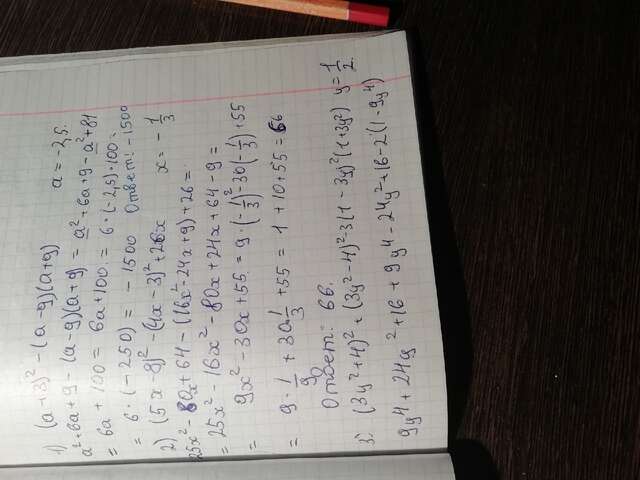 1) (a+3)² - (a-9)(a+9) a = -2,5.
a²+6a+9 - (a-9)(a+9) = a²+6a+9-a²+81
= 6a + 100 = 6a+100 = 6·(-2,5)·100 =
= 6·(-250) = -1500 Ответ: -1500
2) (5x-8)² - (4x-3)²+26x x = -1/3
25x² - 80x + 64 - (16x² - 24x + 9) + 26 =
= 25x² - 16x² - 80x + 24x + 64 - 9 =
= 9x² - 30x + 55 = 9·(-1/3)² - 30(-1/3) + 55
= 9·1/9 + 30·1/3 + 55 = 1 + 10 + 55 = 66
Ответ: 66.
3) (3y²+4)² + (3y²-4)² - 3(1-3y)²(1+3y²) y = 1/2.
9y⁴ + 24y² + 16 + 9y⁴ - 24y² + 16 - 2·(1-9y⁴)